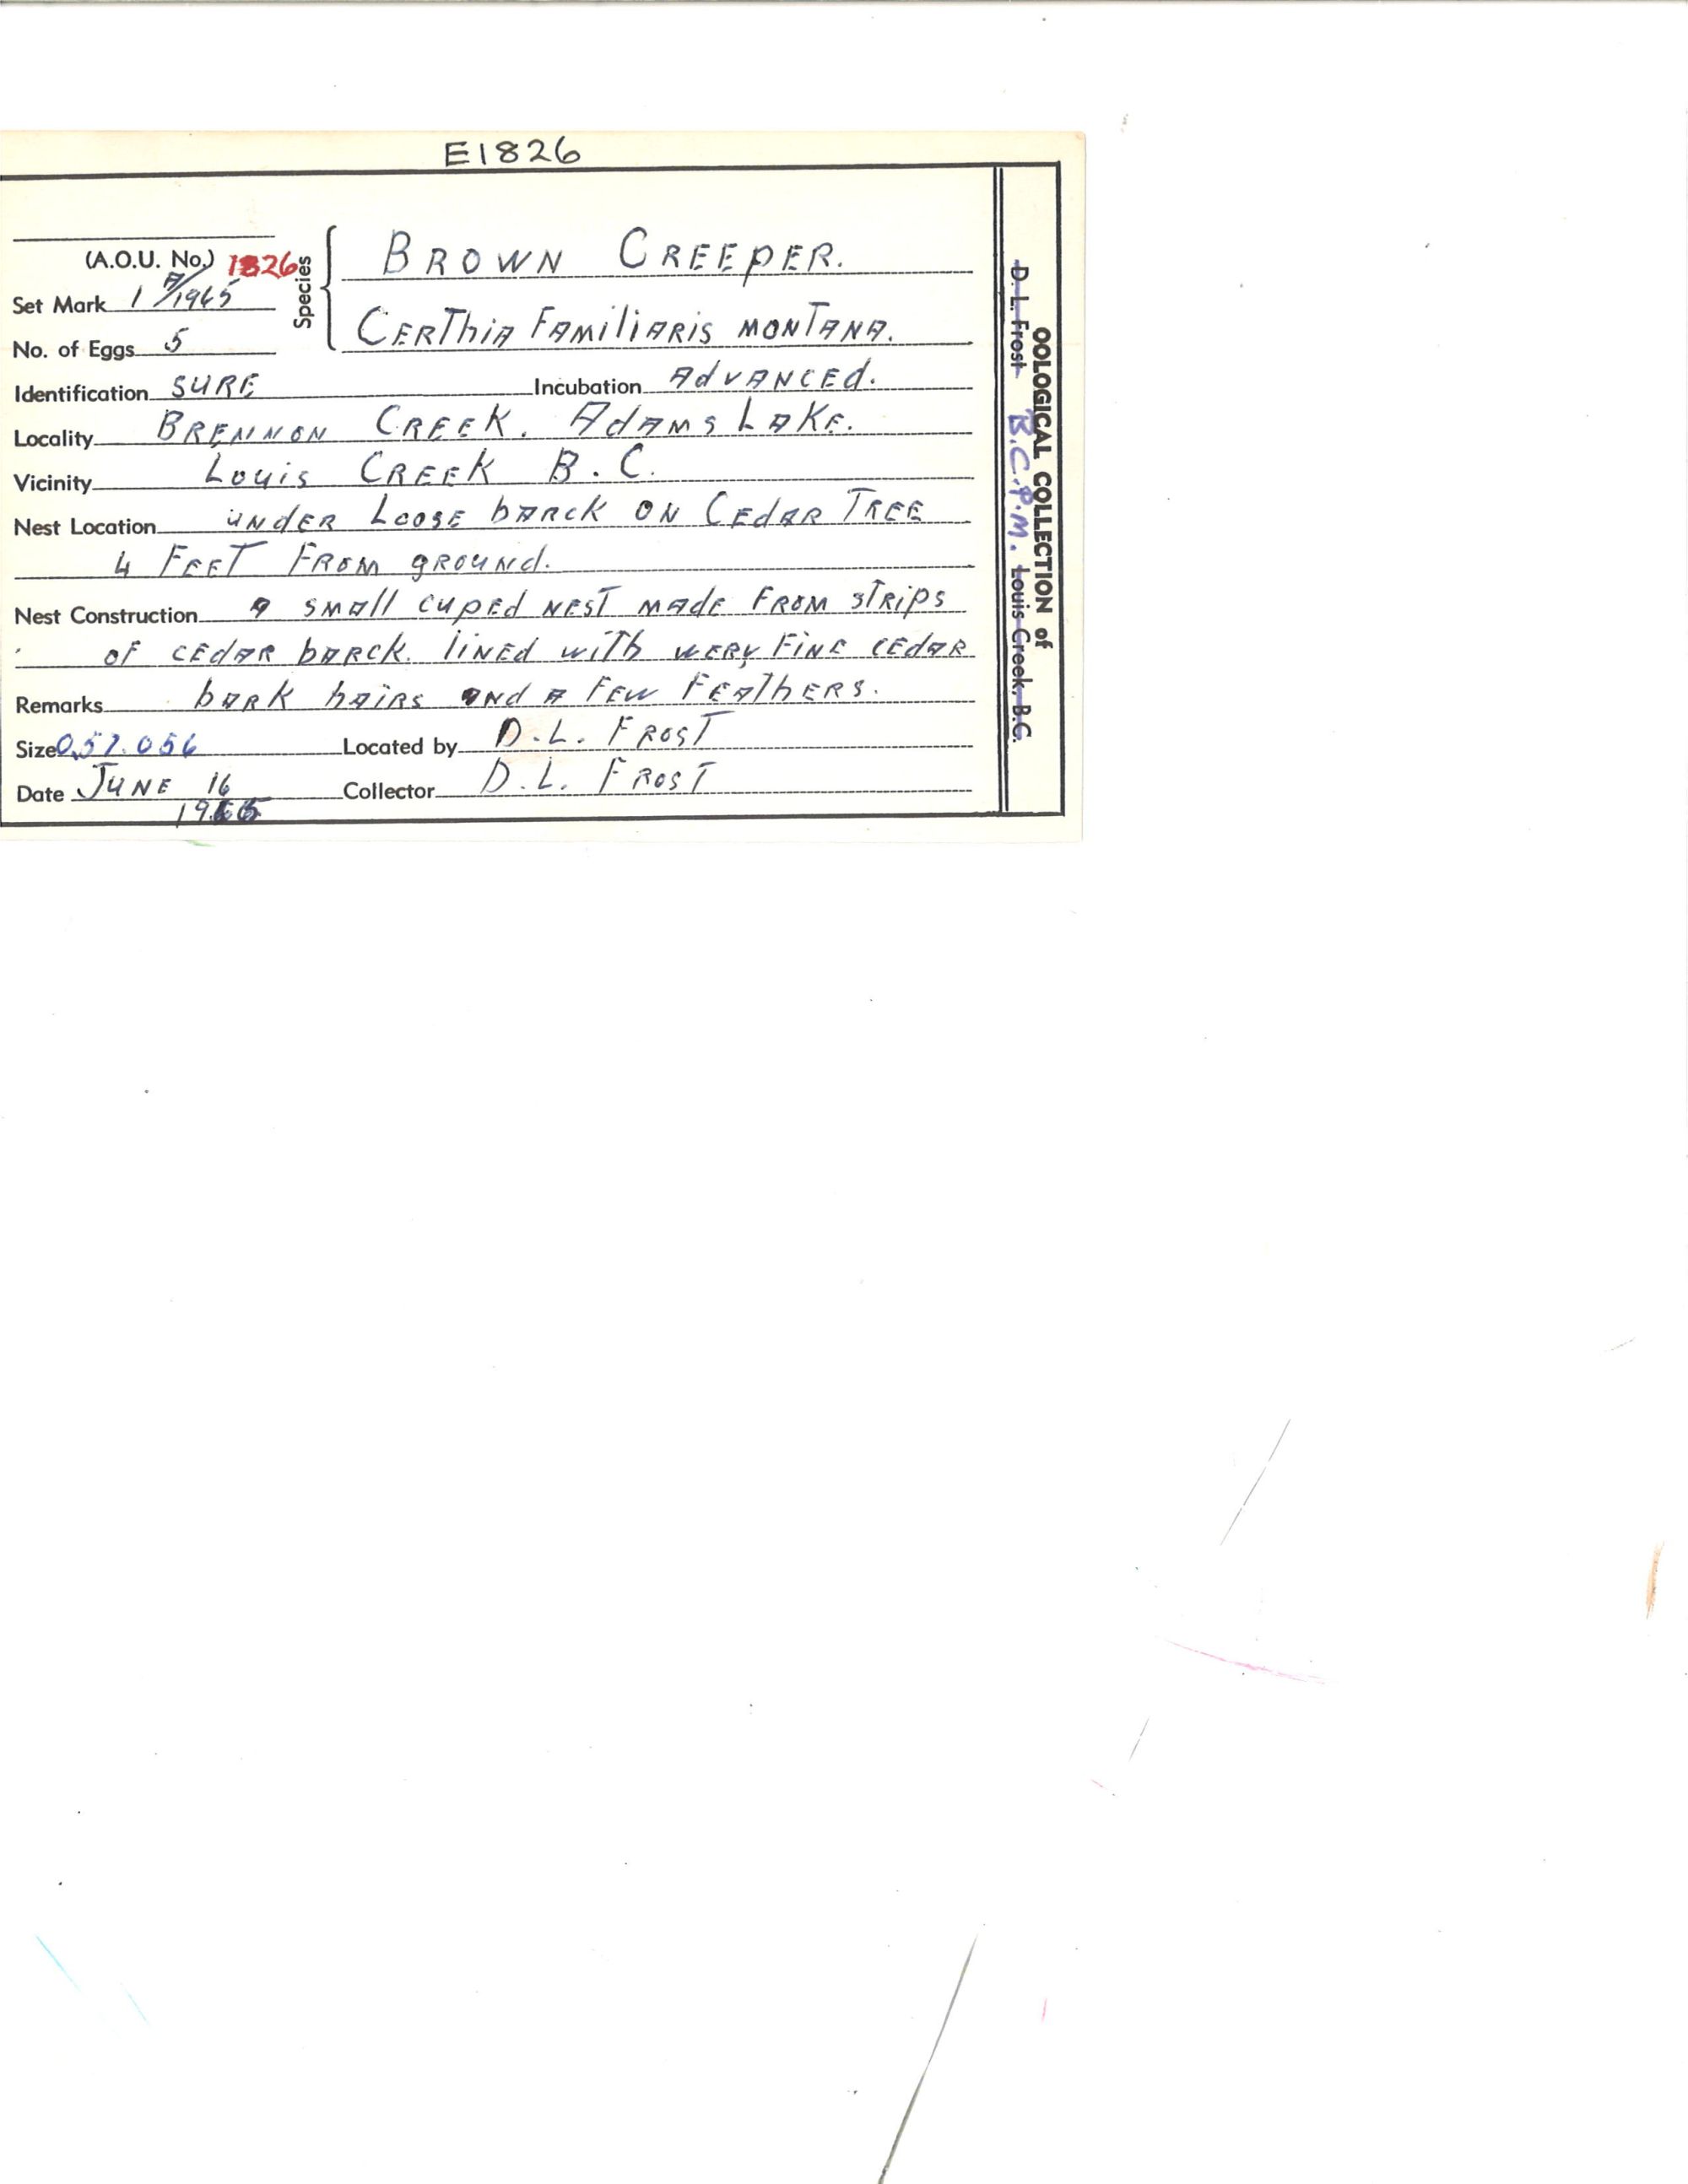 E1826
(A.O.U. No.) 1826
Species { BROWN CREEPER.
Set Mark 1 A/1965
CERThiA FAMiliARIS MONTANA.
No. of Eggs 5
Identification SURE Incubation AdVANCEd.
Locality BRENNON CREEK. AdAMS LAKE.
Vicinity Louis CREEK B.C.
Nest Location UNdER LOOSE bARCK ON CEdAR TREE
4 FEET FROM gROUNd.
Nest Construction A SMAll CUPEd NEST MAdE FROM STRipS
of CEdAR bARCK. liNEd wiTh wERY FiNE CEdAR
Remarks bARK hAiRS ANd A FEW FEAThERS.
Size 0.57.056 Located by D.L. FROST
Date JUNE 16 Collector D.L. FROST
OOLOGICAL COLLECTION of
D. L. Frost B.C.P.M. Louis Creek, B.C.